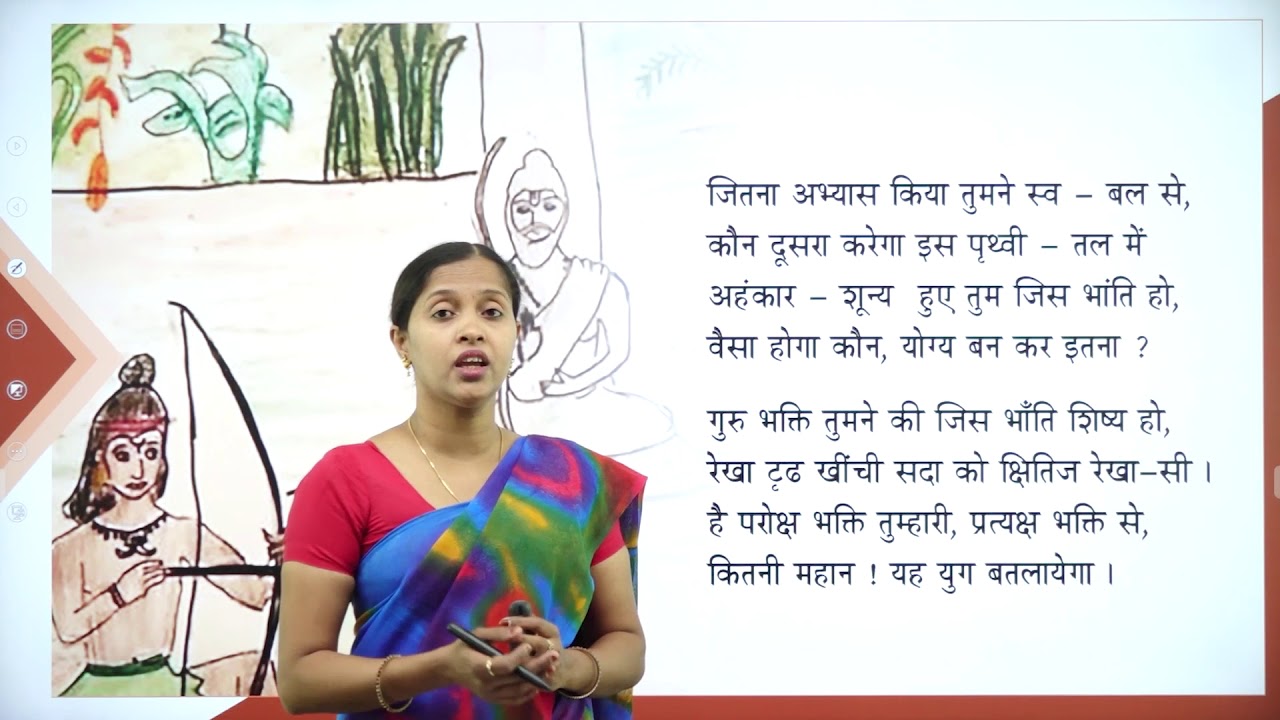 जितना अभ्यास किया तुमने स्व – बल से,
कौन दूसरा करेगा इस पृथ्वी – तल में
अहंकार – शून्य हुए तुम जिस भांति हो,
वैसा होगा कौन, योग्य बन कर इतना ?
गुरु भक्ति तुमने की जिस भाँति शिष्य हो,
रेखा दृढ खींची सदा को क्षितिज रेखा–सी ।
है परोक्ष भक्ति तुम्हारी, प्रत्यक्ष भक्ति से,
कितनी महान ! यह युग बतलायेगा ।